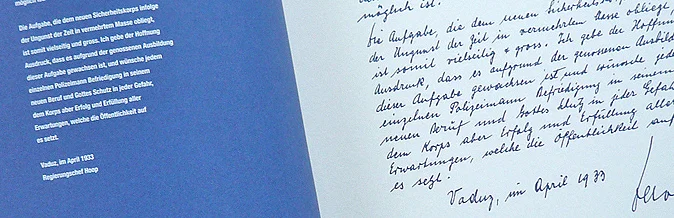 möglich
Die Aufgabe, die dem neuen Sicherheitskorps infolge
der Ungunst der Zeit in vermehrtem Masse obliegt,
ist somit vielseitig und gross. Ich gebe der Hoffnung
Ausdruck, dass es aufgrund der genossenen Ausbildung
dieser Aufgabe gewachsen ist, und wünsche jedem
einzelnen Polizeimann Befriedigung in seinem
neuen Beruf und Gottes Schutz in jeder Gefahr,
dem Korps aber Erfolg und Erfüllung aller
Erwartungen, welche die Öffentlichkeit auf
es setzt.
Vaduz, im April 1933
Regierungschef Hoop
möglich ist.
Die Aufgabe, die dem neuen
der Ungunst der Zeit in vermehrtem Masse obliegt,
ist somit vielseitig & gross. Ich gebe der Hoffnung
Ausdruck, dass es aufgrund der genossenen
dieser Aufgabe gewachsen ist und wünsche
einzelnen Polizeimann Befriedigung in seinem
neuen Beruf und Gottes Schutz in jeder
dem Korps aber Erfolg und Erfüllung
Erwartungen, welche die Öffentlichkeit auf
es setzt.
Vaduz, im April 1933